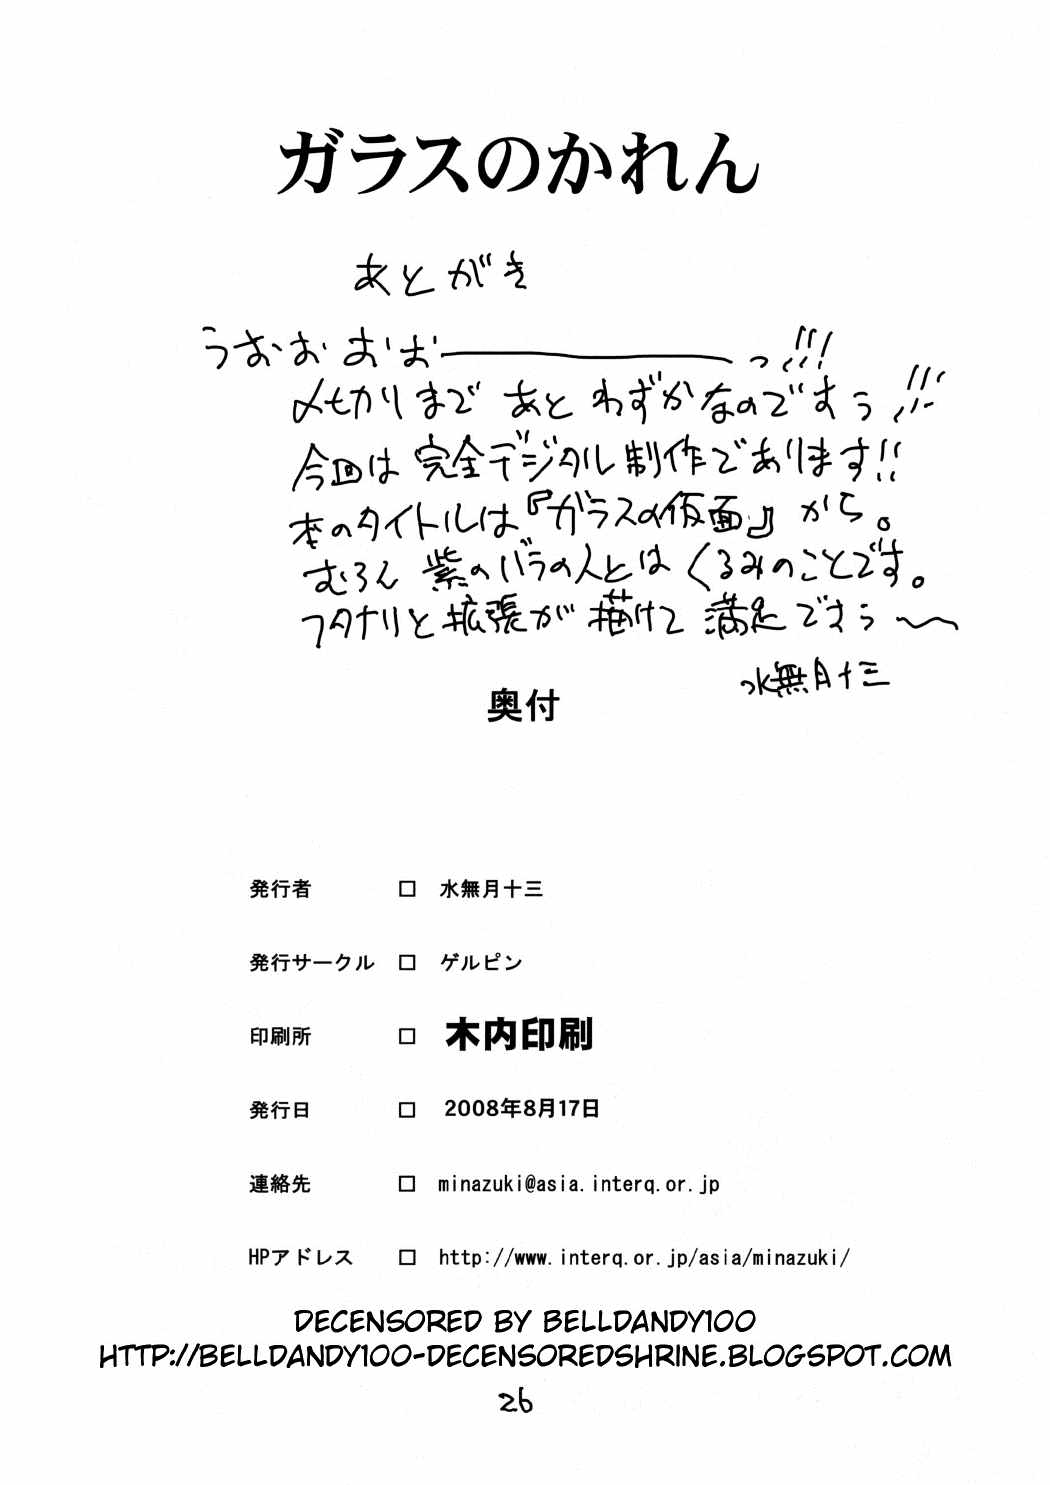 ガラスのかれん
あとがき
うおおおお――――っ!!!
〆切りまであとわずかなのですぅ!!!
今回は完全デジタル制作であります!!
本のタイトルは『ガラスの仮面』から。
むろん紫のバラの人とはくるみのことです。
フタナリと拡張が描けて満足ですぅ〜
水無月十三
奥付
発行者 □ 水無月十三
発行サークル □ ゲルピン
印刷所 □ 木内印刷
発行日 □ 2008年8月17日
連絡先 □ minazuki@asia.interq.or.jp
HPアドレス □ http://www.interq.or.jp/asia/minazuki/
DECENSORED BY BELLDANDY100
HTTP://BELLDANDY100-DECENSOREDSHRINE.BLOGSPOT.COM
26